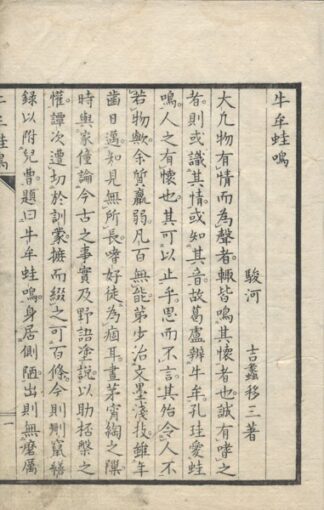 牛牟蛙鳴
駿河 吉蠡移三著
大凡物有情而為聲者輙皆鳴其懷者也誠有嗜之
者則或識其情或知其音故葛盧辨牛牟孔珪愛蛙
鳴人之有懷也其可以止乎思而不言其殆令人不
若物歟余質羸弱凡百無能第少治文墨淺技雖年
齒日邁知見無所長嗜好徒為痼耳晝茅宵綯之隟
時與家僮論今古之事實及野語塗說以助栝槃之
懽譚次遭切於訓蒙摭而綴之可百條今則刪竄繕
錄以附兒曹題曰牛牟蛙鳴身居側陋出則無磨厲
牛牟蛙鳴
一